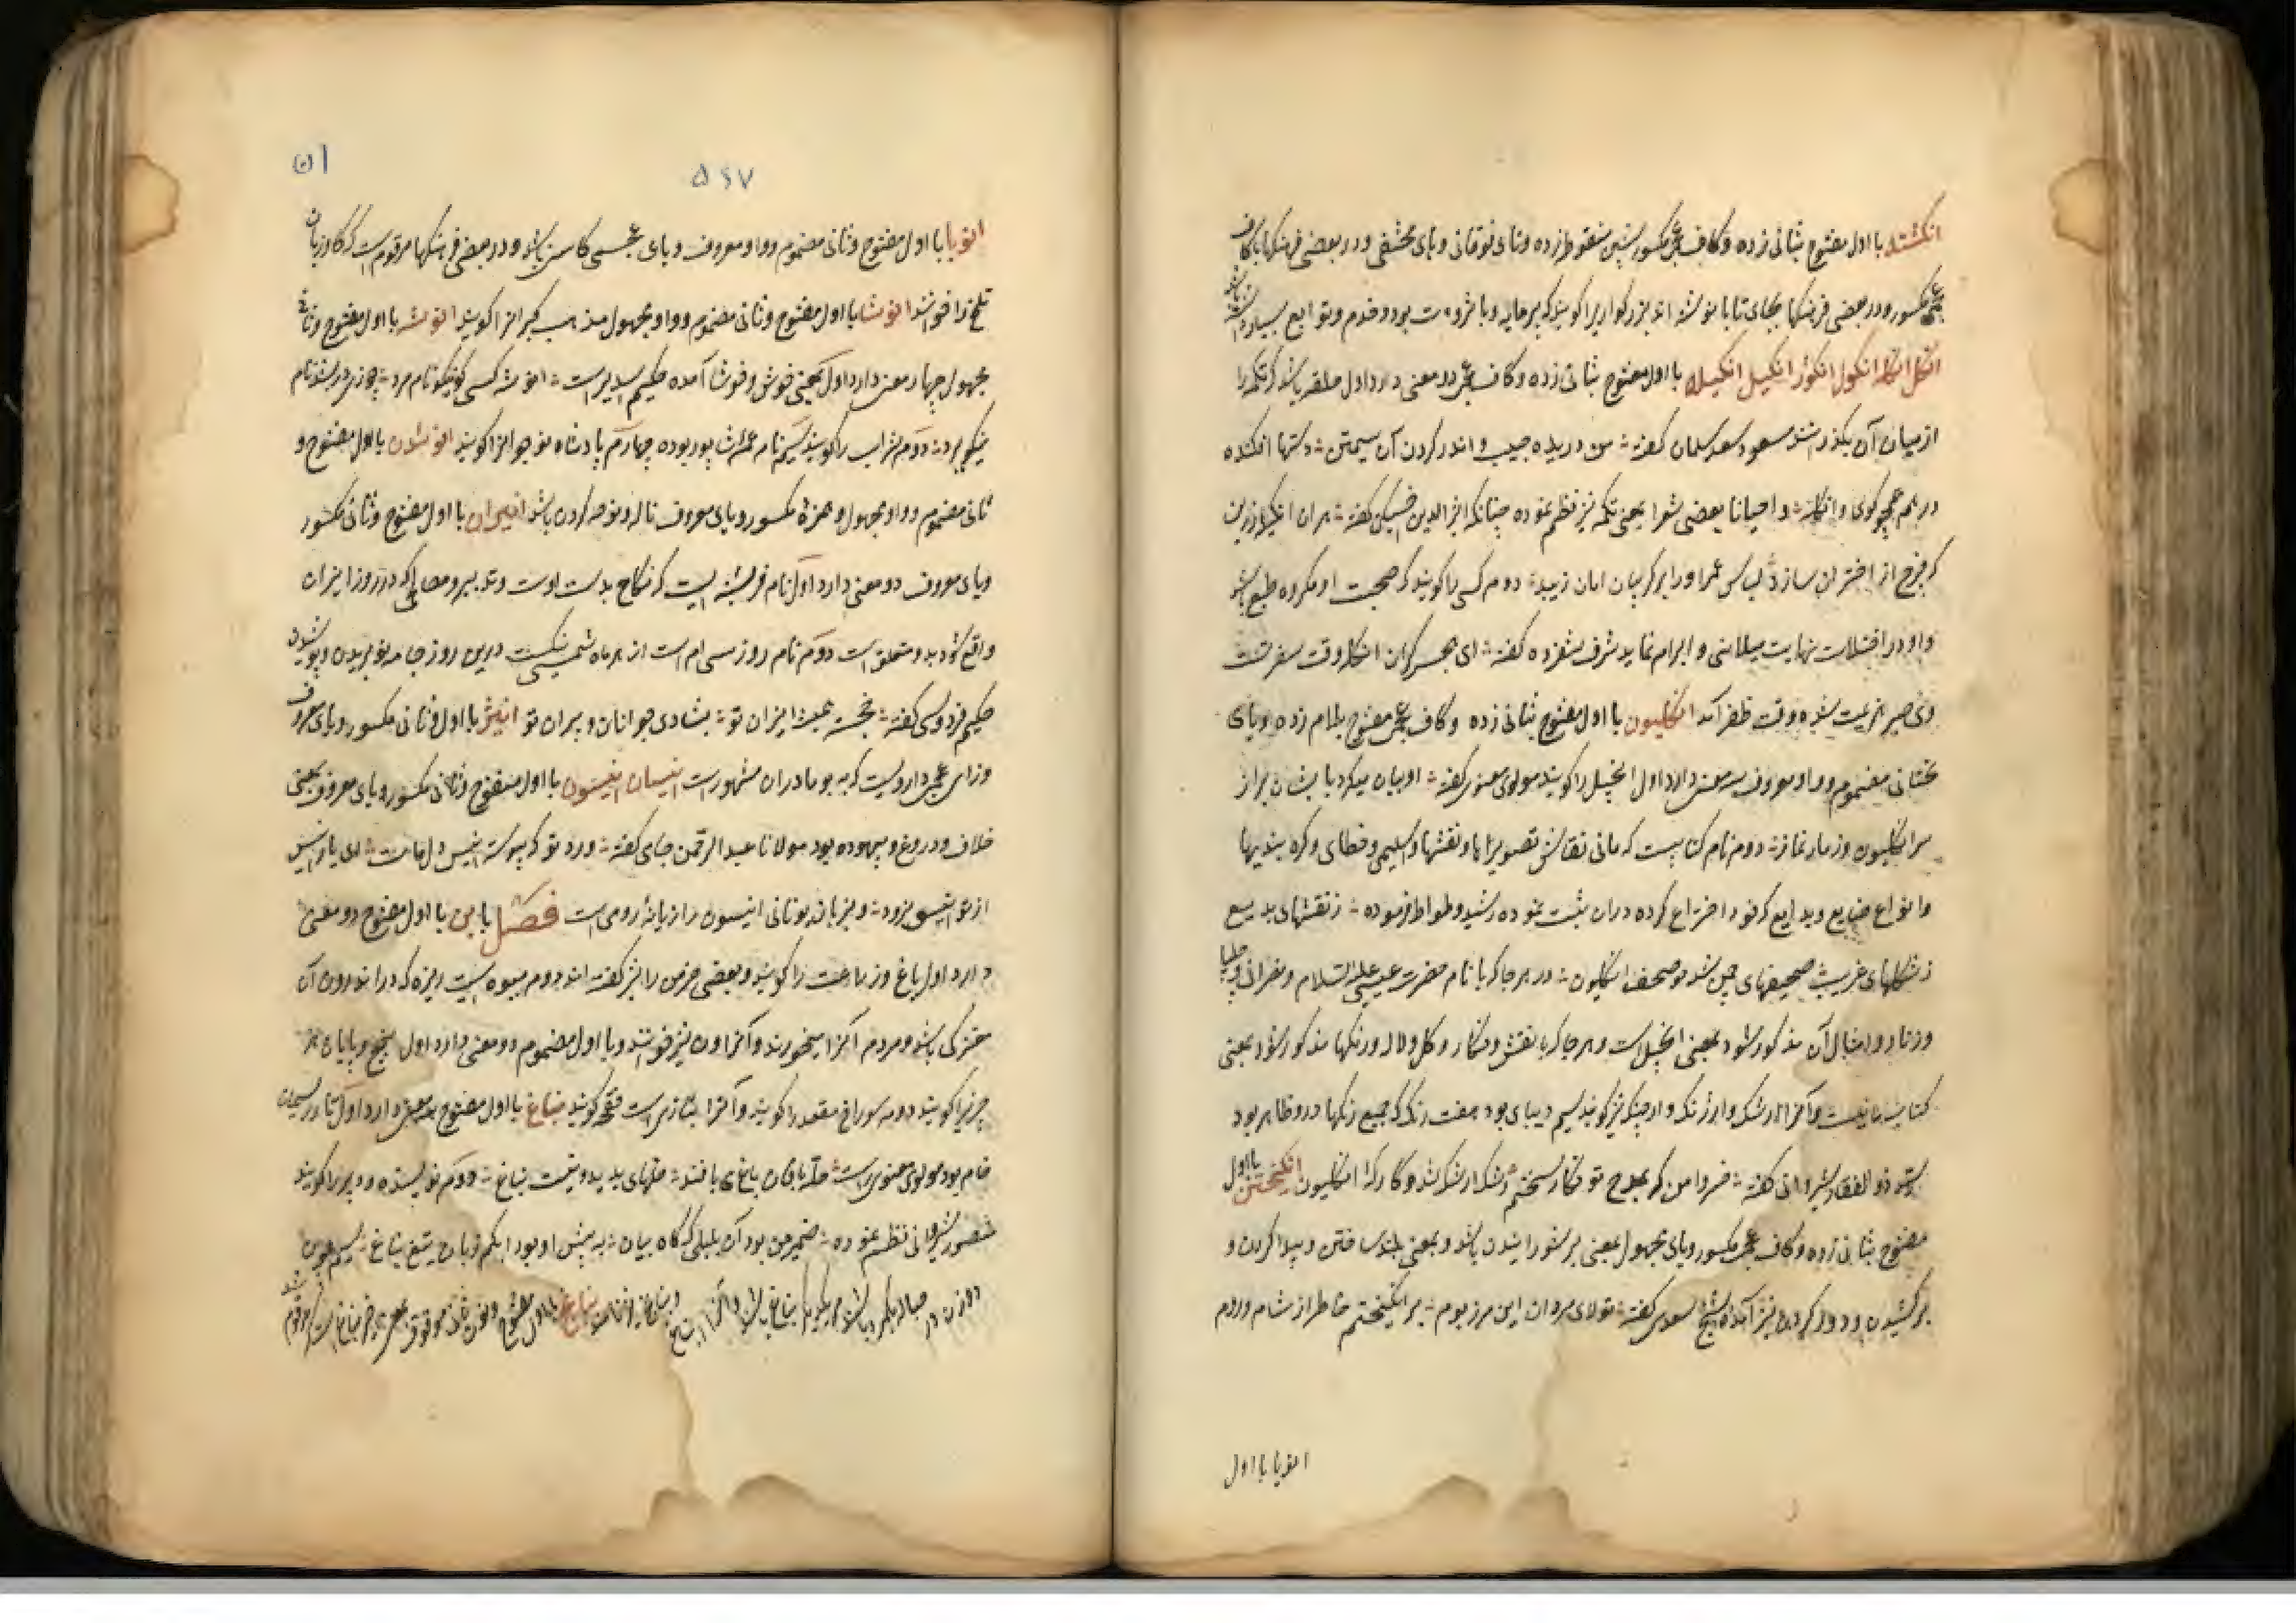 انکشته با اول مفتوح بثانی زده و کاف عجمی مکسور بشین منقوط زده و تای فوقانی و های مختفی و در بعضی فرهنکها با کاف
عجمی مکسور و در بعضی فرهنکها بجای تا با نوشته اند بزرکواریرا کویند که پرمایه و با ثروت بود و خدم و توابع بسیار داشته باشد
انکل انکله انکول انکوله انکیل انکیله با اول مفتوح بثانی زده و کاف عجمی دو معنی دارد اول حلقه باشد که تکمه را
از میان آن بکذرانند مسعود سعد سلمان کفته من دریده جیب و اندر کردن آن سیمتن دستها افکنده
در هم همچو کوی و انکله و احیانا بعضی شعرا بمعنی تکمه نیز نظم نموده چنانکه اثیرالدین اخسیکتی کفته بران انکیله زرین
که چرخ از اختران سازد لباس عمر او را بر کریبان امان زیبد دوم کسی را کویند که صحبت او مکروه طبع باشد
و او در اختلاط نهایت میلانی و ابرام نماید شرف شفروه کفته ای هجر کران انکله وقت سفر تست
وی صبر هزیمت شده وقت ظفر آمد انکلیون با اول مفتوح بثانی زده و کاف عجمی مفتوح بلام زده و یای
تحتانی مضموم و واو معروف سه معنی دارد اول انجیل را کویند مولوی معنوی کفته او بیان میکرد با ایشان براز
سر انکلیون و زنار و نماز دوم نام کتابیست که مانی نقاش تصویرها و نقشها و اسلیمی و خطای و کره بندیها
و انواع صنایع و بدایع که خود اختراع کرده دران ثبت نموده رشید وطواط فرموده ز نقشهای بدیع
ز شکلهای غریب صحیفهای چمن شد چو صحف انکلیون در هر جا که با نام حضرت عیسی علیه السلام و نصرانی و چلیپا
و زنار و امثال آن مذکور شود بمعنی انجیل است و هر جا که با نقش و نکار و کل و لاله و رنکها مذکور شود بمعنی
کتاب مانیست و آنرا ارتنک و ارژنک و ارجنک نیز کویند سیم دیبای بود هفت رنک که جمیع رنکها درو ظاهر بود
ذوالفقار شروانی کفته خسروا من که بمدح تو نکار سخنم رشک ارتنک شد و کارکه انکلیون انکیختن با اول
مفتوح بثانی زده و کاف عجمی مکسور و یای مجهول بمعنی بر شورانیدن باشد و بمعنی بلند ساختن و پیدا کردن و
بر کشیدن و دور کردن نیز آمده شیخ سعدی کفته تولای مردان این مرز بوم بر انکیختم خاطر از شام و روم
انوپا با اول
ان
۵۶۷
انوپا با اول مفتوح و ثانی مضموم و واو معروف و بای عجمی کاسنی باشد و در بعضی فرهنکها مرقوم است که کاوزبان
تلخ را خوانند انوشا با اول مفتوح و ثانی مضموم و واو مجهول مذهب کبرانرا کویند انوشه با اول مفتوح و ثانی
مجهول چهار معنی دارد اول بمعنی خوش و خوشا آمده حکیم اسدی راست انوشه کسی کو نیکو نام مرد چو ایزدش نام
نیکو ببرد دوم شراب را کویند سیم نام عمه شاپور بوده چهارم پادشاه نو جوانرا کویند انوئیدن با اول مفتوح و
ثانی مضموم و واو مجهول و همزه مکسور و یای معروف ناله و نوحه کردن باشد انیران با اول مفتوح و ثانی مکسور
و یای معروف دو معنی دارد اول نام فرشته ایست که نکاح بدست اوست و تدبیر و مصالحی که در روز انیران
واقع شود بدو متعلق است دوم نام روز سی ام است از هر ماه شمسی نیکست درین روز جامه نو بریدن و پوشیدن
حکیم فردوسی کفته خجسته همیشه انیران تو بشادی جوانان و پیران تو انیژ با اول و ثانی مکسور و یای معروف
و زای عجمی داروئیست که به بو مادران مشهور است انیسان انیسون با اول مفتوح و ثانی مکسور و یای معروف بمعنی
خلاف و دروغ و بیهوده بود مولانا عبدالرحمن جامی کفته ورد تو که پیوسته انیس دل ماست
از تو انیسی نبود و بزبان یونانی انیسون رازیانهٔ رومی است فصل با بن با اول مفتوح دو معنی
دارد اول باغ و زراعت را کویند و بعضی خرمن را نیز کفته اند دوم میوه ایست ریزه که در اندرون آن
مغزکی باشد و مردم آنرا میخورند و آنرا ون نیز خوانند و با اول مضموم دو معنی دارد اول بیخ و پایان هر
چیزیرا کویند دوم سوراخ مقعد را کویند و آنرا بتازی است فقحه کویند بناغ با اول مفتوح سه معنی دارد اول تار ریسمان
خام بود مولوی معنوی راست حله بافان باغ می بافند حلهای بدید و نیست بناغ دوم نویسنده و دبیر را کویند
منصور شیرازی نظم نموده ضمیر من بود آن بلبلی که کاه بیان به پیش او بود ابکم زبان تیغ بناغ سیم چون
دو زن در حباله یک مرد باشند هر یک مر دیکر را بناغ باشد و آنرا انباغ و بنانج نیز خوانند بنانج با اول مفتوح و نون ثانی موقوف بمعنی آخر بناغ است که مرقوم شد